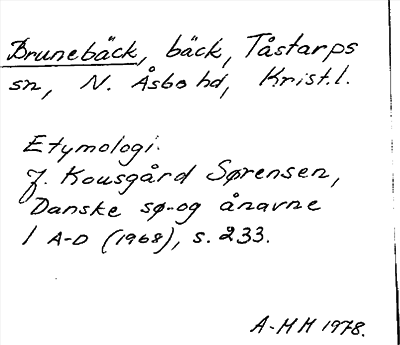 Brunebäck, bäck, Tåstarps
sn, N. Åsbo hd, Krist.l.
Etymologi:
J. Kousgård Sørensen,
Danske sø- og ånavne
1 A-D (1968), s. 233.
A-MH 1978.